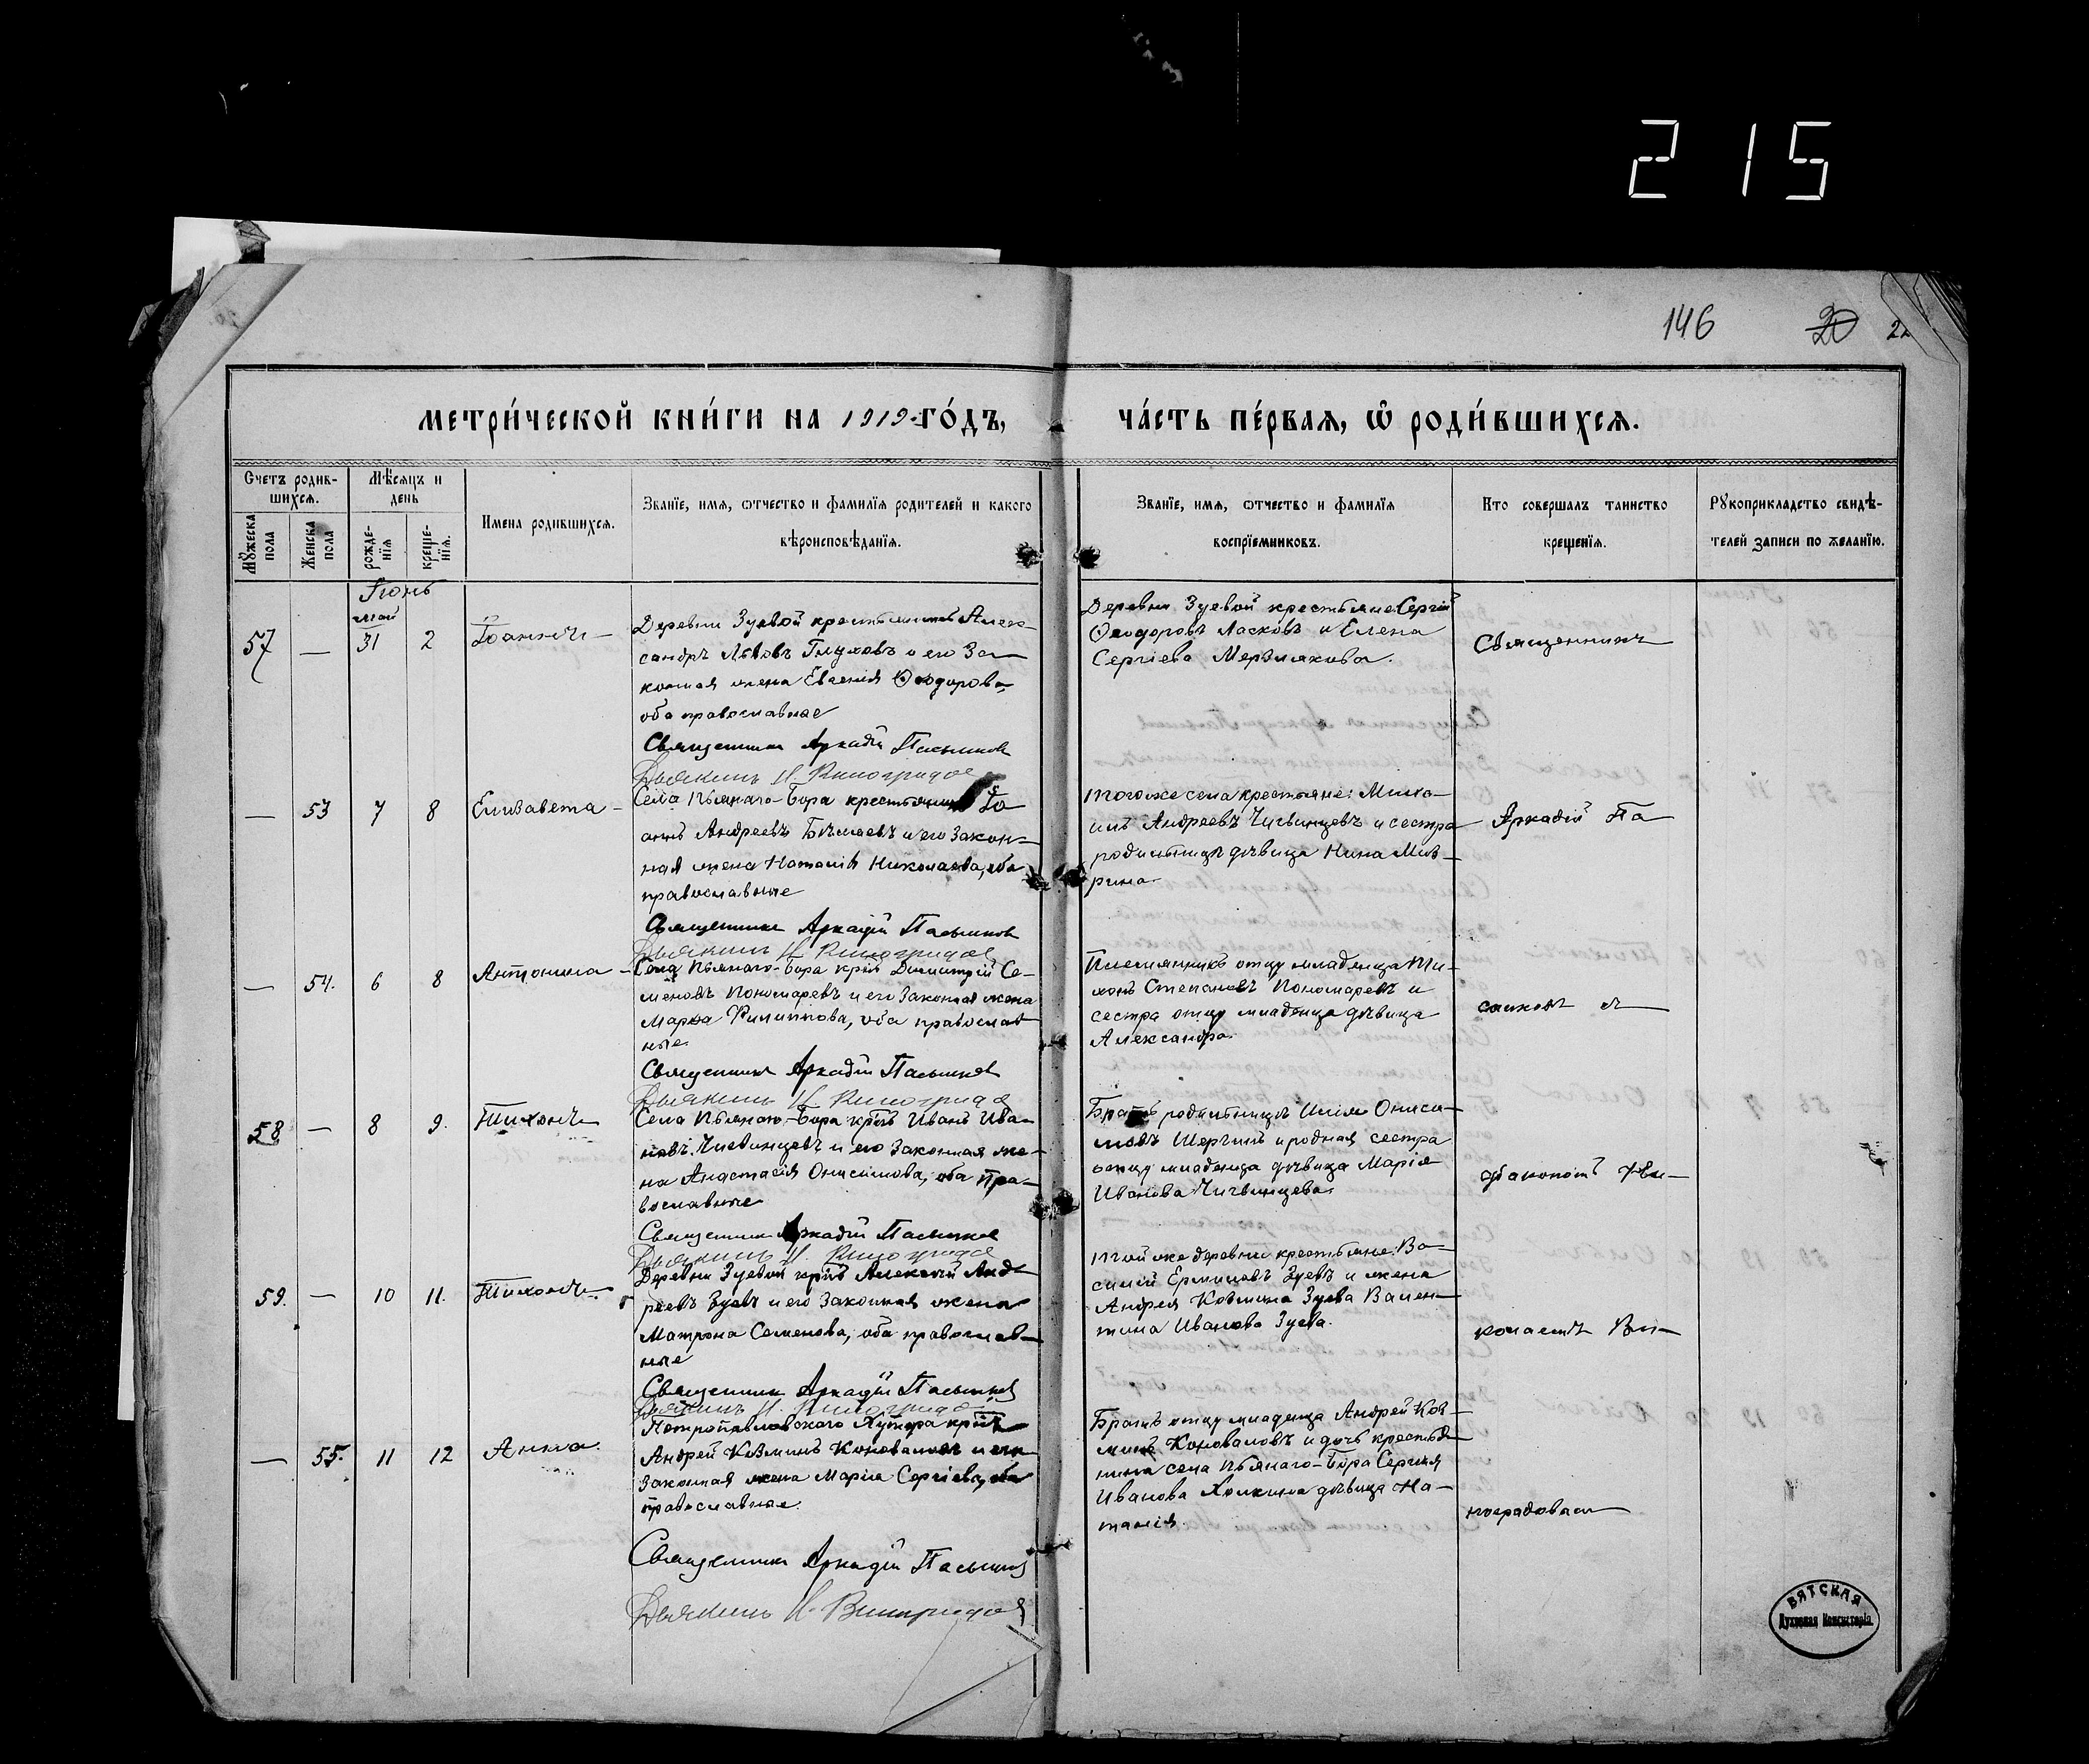 215
146 20 22
МЕТРИ́ЧЕСКОЙ КНИ́ГИ НА 1919 ГО́ДЪ,
ЧА́СТЬ ПЕ́РВАЯ, Ѽ РОДИ́ВШИХСЯ.
Счетъ родив-
шихся.
Мѣсяцъ и
день
Мꙋжеска
пола
Женска
пола
рожде-
нїя
креще-
нїя.
Имена родившихся.
Званїе, имя, ѿчество и фамилїя родителей и какого
вѣроисповѣданїя.
Званїе, имя, ѿчество и фамилїя
воспрїемниковъ.
Кто совершалъ таинство
крещенїя.
Рꙋкоприкладство свидѣ-
телей записи по желанїю.
Іюнь
май
57 — 31 2 Іоаннъ —
Деревни Зуевой крестьянинъ Алек-
сандръ Львовъ Глуховъ и его за-
конная жена Евгенія Ѳеодорова,
оба православные
Священникъ Аркадій Пасынков
Дьяконъ Н. Виноградов
Деревни Зуевой крестьяне Сергій
Ѳеодоровъ Ласковъ и Елена
Сергіева Мерзлякова.
Священникъ
— 53 7 8 Елизавета —
Села Пьянаго-Бора крестьянинъ Іо
аннъ Андреевъ Бѣляевъ и его закон-
ная жена Наталія Николаева, оба
православные
Священникъ Аркадій Пасынков
Дьяконъ Н. Виноградов
того же села крестьяне: Миха-
илъ Андреевъ Чигвинцевъ и сестра
родительницы дѣвица Нина
Аркадій Па
— 54. 6 8 Антонина —
Села Пьянаго-Бора кр-нъ Димитрій Се-
меновъ Пономаревъ и его законная жена
Марѳа Филиппова, оба православ-
ные
Священникъ Аркадій Пасынков
Дьяконъ Н. Виноградов
Племянникъ отцу младенца Ти-
хонъ Степановъ Пономаревъ и
сестра отцу младенца дѣвица
Александра.
сынковъ съ
58 — 8 9. Тихонъ
Села Пьянаго-Бора кр-нъ Иванъ Ива-
новъ Чигвинцевъ и его законная же-
на Анастасія Онисимова, оба пра-
вославные
Священникъ Аркадій Пасынков
Дьяконъ Н. Виноградов
Братъ родительницы Онис-
мовъ Шергинъ и родная сестра
отцу младенца дѣвица Марія
Иванова Чигвинцева.
дьякономъ
59. — 10 11. Тихонъ.
Деревни Зуевой кр-нъ Алексѣй Анд-
реевъ Зуевъ и его законная жена
Матрона Семенова, оба православ-
ные
Священникъ Аркадій Пасынков
Дьяконъ Н. Виноградов
той же деревни крестьяне: Ва-
силій Ермиловъ Зуевъ и жена
Андрея Козмина Зуева Вален-
тина Иванова Зуева.
Ви-
— 55. 11 12 Анна.
Петропавловского Хутора кр-нъ
Андрей Козминъ Коноваловъ и его
законная жена Марія Сергіева, оба
православные.
Священникъ Аркадій Пасынков
Дьяконъ Н. Виноградов
Братъ отцу младенца Андрей Коз-
минъ Коноваловъ и дочь крестья-
нина села Пьянаго-Бора Сергія
Иванова Холкина дѣвица На-
талія.
ноградовым
ВЯТСКАЯ
Духовная Консисторія